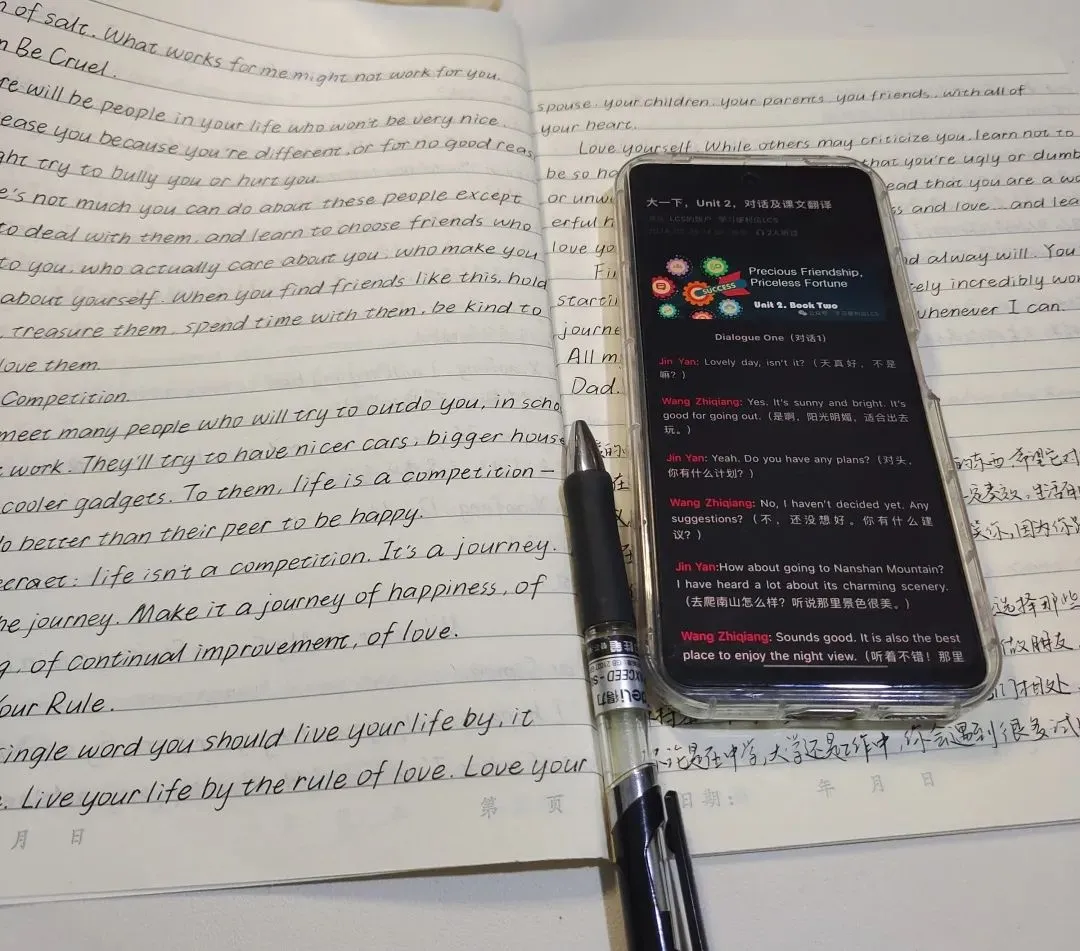 of salt. What works for me might not work for you.
Be Cruel.
will be people in your life who won't be very nice.
ease you because you're different, or for no good reas
ght try to bully you or hurt you.
e's not much you can do about these people except
to deal with them, and learn to choose friends who
to you, who actually care about you, who make you
about yourself. When you find friends like this, hold
, treasure them, spend time with them, be kind to
love them.
Competition.
meet many people who will try to outdo you, in scho
work. They'll try to have nicer cars, bigger house
cooler gadgets. To them, life is a competition —
o better than their peer to be happy.
ecraet: life isn't a competition. It's a journey.
he journey. Make it a journey of happiness, of
g, of continual improvement, of love.
our Rule.
ingle word you should live your life by, it
. Live your life by the rule of love. Love your
月 日
第 页
spouse, your children, your parents, you friends, with all of
your heart.
Love yourself. While others may criticize you, learn not to
be so ha
that you're ugly or dumb
or unw
ead that you are a wo
erful h
ss and love, and lea
love yo
nd alway will. You
Fin
ely incredibly won
starti
whenever I can.
journe
All m
Dad.
大一下，Unit 2，对话及课文翻译
Precious Friendship,
Priceless Fortune
SUCCESS
Unit 2. Book Two
Dialogue One（对话1）
Jin Yan: Lovely day, isn't it?（天真好，不是
嘛？）
Wang Zhiqiang: Yes. It's sunny and bright. It's
good for going out.（是啊，阳光明媚，适合出去
玩。）
Jin Yan: Yeah. Do you have any plans?（对头，
你有什么计划？）
Wang Zhiqiang: No, I haven't decided yet. Any
suggestions?（不，还没想好。你有什么建
议？）
Jin Yan:How about going to Nanshan Mountain?
I have heard a lot about its charming scenery.
（去爬南山怎么样？听说那里景色很美。）
Wang Zhiqiang: Sounds good. It is also the best
place to enjoy the night view.（听着不错！那里
的东西,希望它对
笑你,因为你
选择那些
做朋友
们相处
论是在中学,大学还是工作中,你会遇到很多试
日期： 年 月 日
deli得力